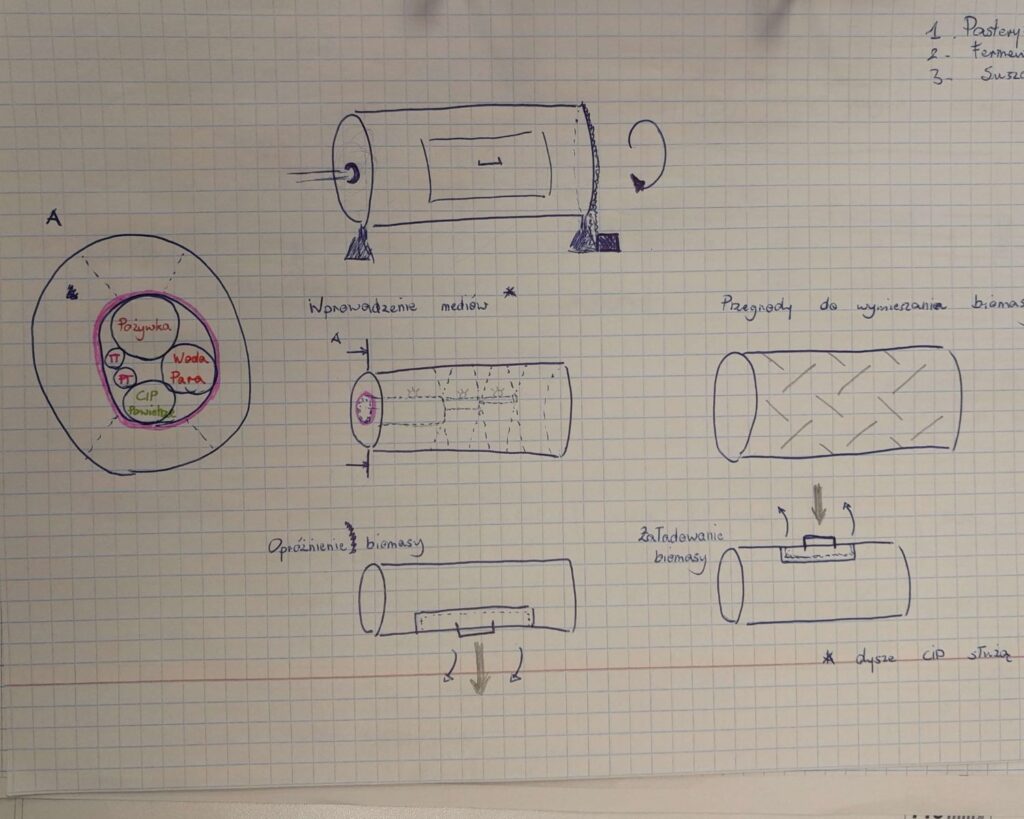 1. Pastery
2. Fermen
3- Susza
A
Pożywka
TT
PT
Woda
Para
CIP
Powietrze
Wprowadzenie mediów *
A
Przegrody do wymieszania biomas
Opróżnienie biomasy
Załadowanie
biomasy
* dysze CIP służą